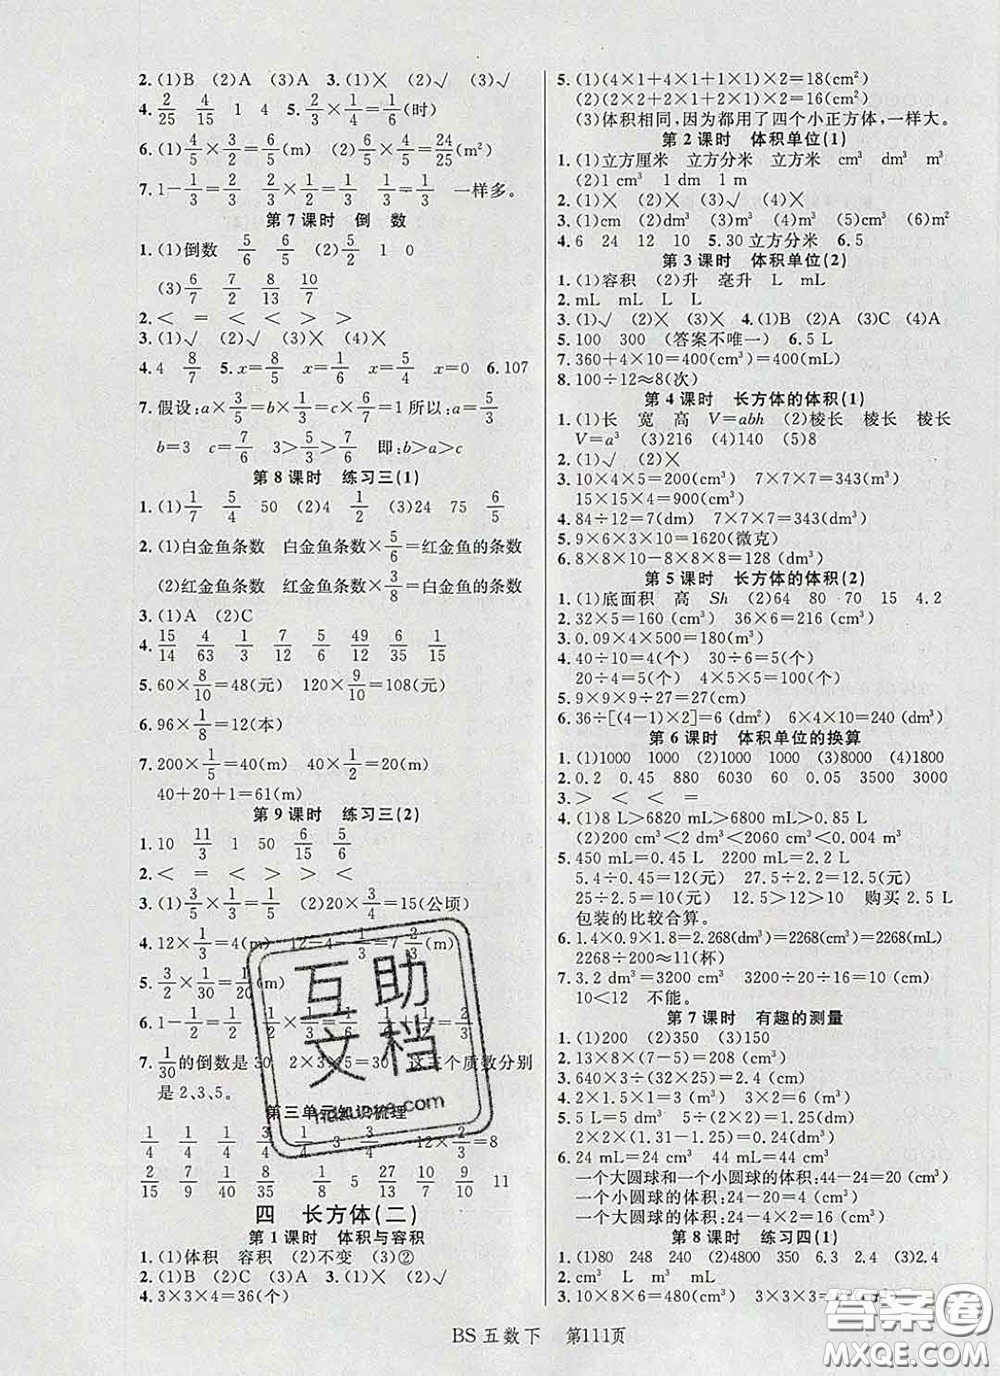 2.(1)B (2)A (3)A 3.(1)× (2)√ (3)√
4. 2/25 4/15 1 4 5. 2/3×1/4=1/6(时)
6.(1) 4/5×3/2=6/5(m) (2) 6/5×4/5=24/25(m²)
7. 1-1/3=2/3 2/3×1/2=1/3 1/3=1/3 一样多。
第7课时 倒 数
1.(1)倒数 5/6 6/5 (2) 5/2 1 0
(3) 6/7 7/2 8/13 10/7
2.< = < < > >
3.(1)√ (2)√ (3)× (4)√
4. 4 8/7 5. x=5/8 x=1/3 x=5/4 6.107
7.假设:a×3/5=b×1/3=c×6/7=1所以:a=5/3
b=3 c=7/6 3>5/3>7/6 即:b>a>c
第8课时 练习三(1)
1.(1) 1/7 5/4 50 (2)4 1/2 (3)24 75 6/5
2.(1)白金鱼条数 白金鱼条数×5/6=红金鱼的条数
(2)红金鱼条数 红金鱼条数×3/8=白金鱼的条数
3.(1)A (2)C
4. 15/14 4/63 1/3 1/2 5/6 49/12 6/35 11/15
5. 60×8/10=48(元) 120×9/10=108(元)
6. 96×1/8=12(本)
7. 200×1/5=40(m) 40×1/2=20(m)
40+20+1=61(m)
第9课时 练习三(2)
1. 10 11/3 1 50 6/15 5/6
2.< = < > > <
3.(1) 3/5×1/3=1/5(公顷) (2)20×3/4=15(公顷)
4. 12×1/3=4(m) 12-4-1/3=7 2/3(m)
5. 3/2×1/30=1/20(m)
6. 1-1/2=1/2 1/2×1/3=
7. 1/30的倒数是30 2×3×5=30 这三个质数分别
是2、3、5。
第三单元知识梳理
1/4 1/4 3/4 1/4 1/2 12×2/3=8
2/15 7/9 10/9 7/8 4/15 5/21 27/20 13/10 9/10 11
四 长方体(二)
第1课时 体积与容积
1.(1)体积 容积 (2)不变 (3)②
2.(1)B (2)C (3)A 3.(1)× (2)√
4. 3×3×4=36(个)
5.(1)(4×1+4×1+1×1)×2=18(cm²)
(2)(2×2+2×2+2×2)×2=16(cm²)
(3)体积相同,因为都用了四个小正方体,一样大。
第2课时 体积单位(1)
1.(1)立方厘米 立方分米 立方米 cm³ dm³ m³
(2)1 cm³ 1 dm 1 m
2.(1)× (2)× (3)√ (4)×
3.(1)cm (2)dm³ (3)dm² (4)cm³ (5)cm³ (6)m³
4. 6 24 12 10 5.30立方分米 6.5
第3课时 体积单位(2)
1.(1)容积 (2)升 毫升 L mL
2. mL mL L L
3.(1)√ (2)× (3)× 4.(1)B (2)A (3)C (4)A
5. 100 300 (答案不唯一) 6.5 L
7. 360+4×10=400(cm³)=400(mL)
8. 100÷12≈8(次)
第4课时 长方体的体积(1)
1.(1)长 宽 高 V=abh (2)棱长 棱长 棱长
V=a³ (3)216 (4)140 (5)8
2.(1)√ (2)×
3. 10×4×5=200(cm³) 7×7×7=343(cm³)
15×15×4=900(cm³)
4. 84÷12=7(dm) 7×7×7=343(dm³)
5. 9×6×3×10=1620(微克)
6. 8×8×10-8×8×8=128 (dm³)
第5课时 长方体的体积(2)
1.(1)底面积 高 Sh (2)64 80 70 15 4.2
2. 32×5=160 (cm³) 36×6=216 (cm³)
3. 0.09×4×500=180(m³)
4. 40÷10=4(个) 30÷6=5(个)
20÷4=5(个) 4×5×5=100(个)
5. 9×9×9÷27=27(cm)
6. 36÷[(4-1)×2]=6 (dm²) 6×4×10=240 (dm³)
第6课时 体积单位的换算
1.(1)1000 1000 (2)1000 1000 (3)8000 (4)1800
2. 0.2 0.45 880 6030 60 0.05 3500 3000
3.> < < =
4.(1)8 L>6820 mL>6800 mL>0.85 L
(2)200 cm³<2 dm³<2060 cm³<0.004 m³
5. 450 mL=0.45 L 2200 mL=2.2 L
5.4÷0.45=12(元) 27.5÷2.2=12.5(元)
25÷2.5=10(元) 12.5>12>10 购买2.5 L
包装的比较合算。
6. 1.4×0.9×1.8=2.268(dm³)=2268(cm³)=2268(mL)
2268÷200≈11(杯)
7. 3.2 dm³=3200 cm³ 3200÷20÷16=10(cm)
10<12 不能。
第7课时 有趣的测量
1.(1)200 (2)350 (3)150
2. 13×8×(7-5)=208 (cm³)
3. 640×3×(5-2)=2.4 (cm)
4. 2×2×(1.5-1)÷6=
5. 5 L=5 dm³ 5÷(2×2)=1.25(dm)
2×2×(1.31-1.25)=0.24(dm³)
6. 24 mL=24 cm³ 44 mL=44 cm³
一个大圆球和一个小圆球的体积:44-24=20(cm³)
一个小圆球的体积:24-20=4 (cm³)
一个大圆球的体积:24-4×2=16 (cm³)
第8课时 练习四(1)
1.(1)80 248 240 (2)4800 350 6.3 2.4
2. cm³ L m³ mL cm²
3. 10×8×6=480(cm³) 3×3×3=
BS五数下 第111页
互助
文档
答案圈
MXQE.COM